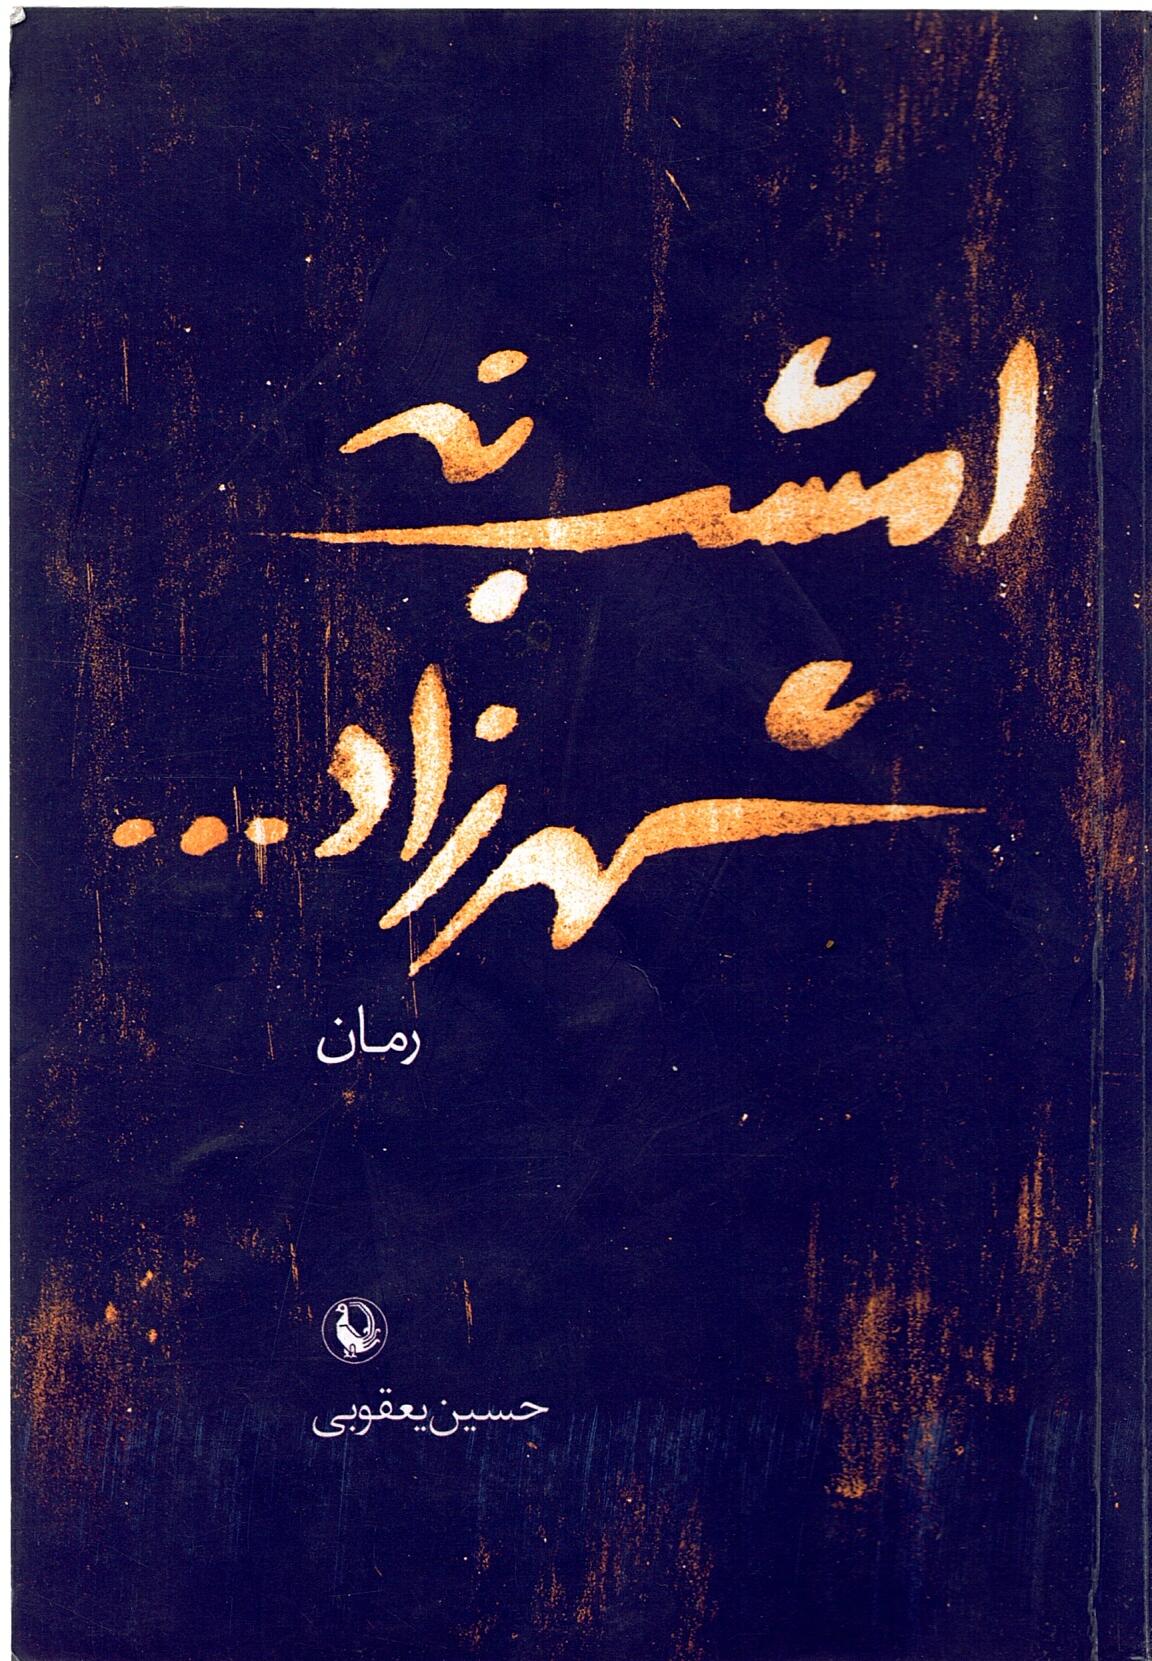 امشب نه
شهرزاد...
رمان
حسین یعقوبی